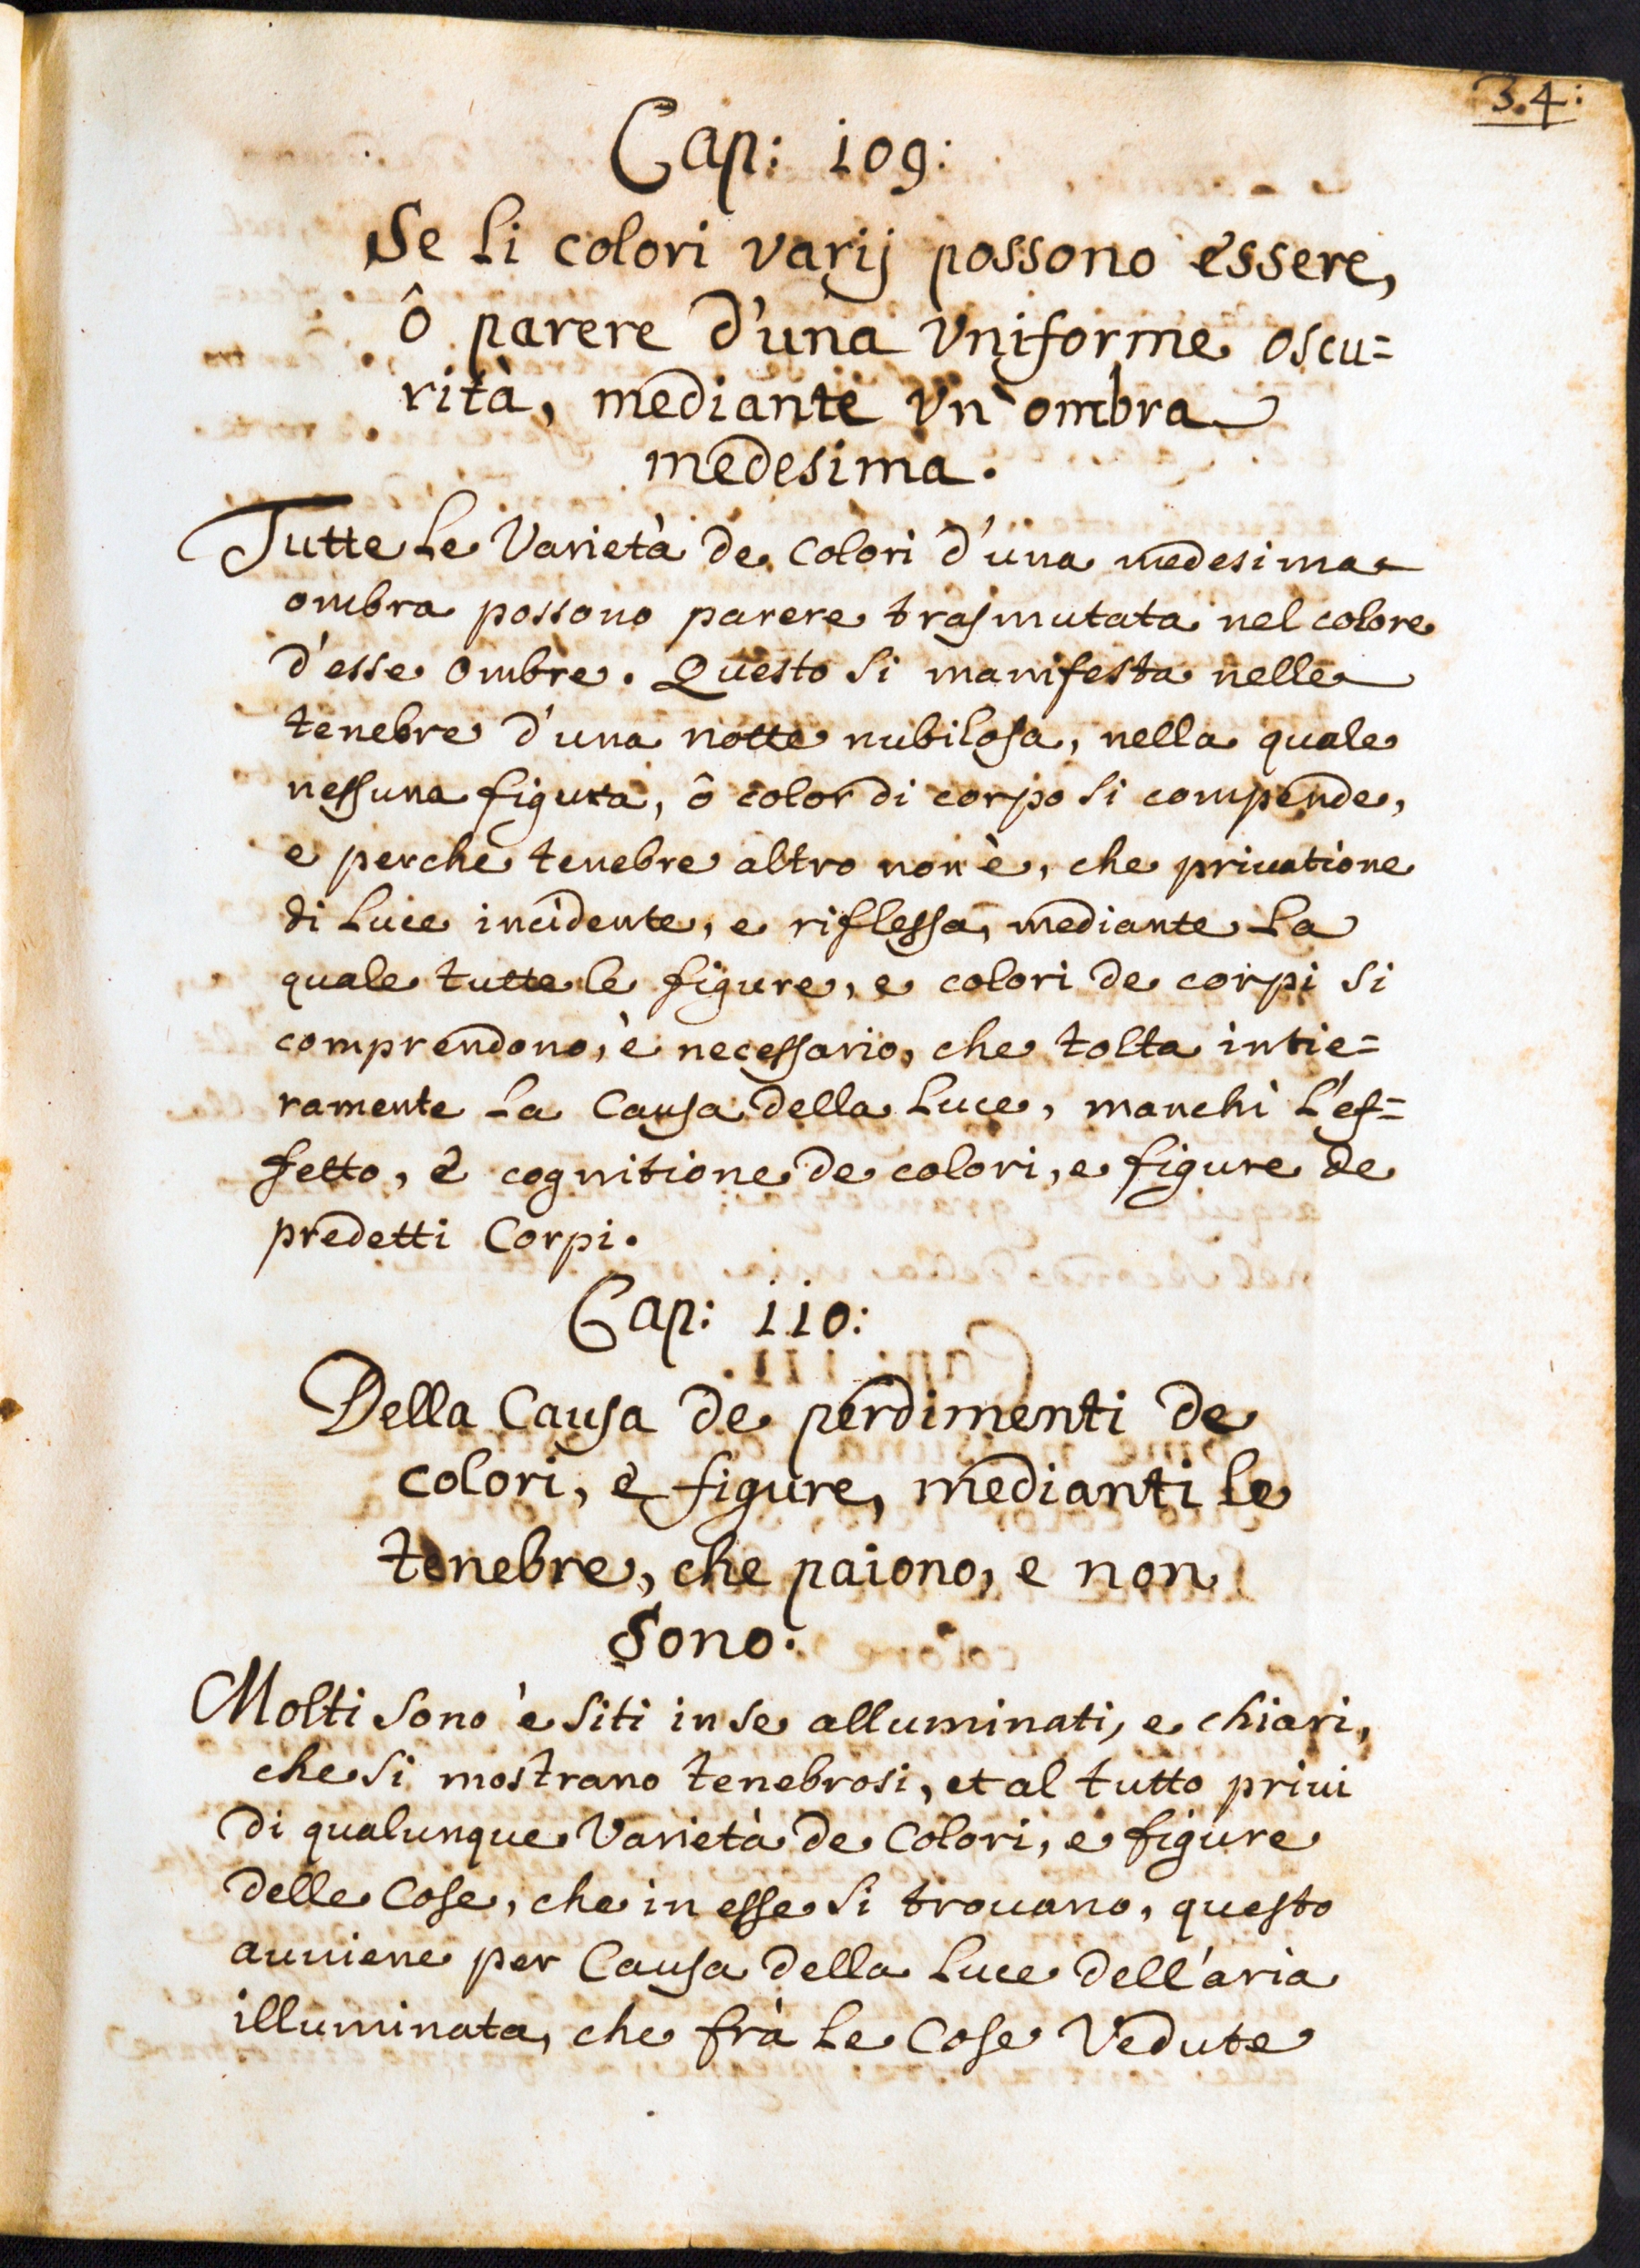 34:
Cap: 109:
Se li colori varij possono essere,
ô parere d'una vniforme oscu=
rità, mediante vn'ombra
medesima.
Tutte le Varietà de colori d'una medesima
ombra possono parere trasmutata nel colore
d'esse ombre. Questo si manifesta nelle
tenebre d'una notte nubilosa, nella quale
nessuna figura, ô color di corpo si compende,
e perche tenebre altro non è, che priuatione
di luce incidente, e riflessa, mediante la
quale tutte le figure, e colori de corpi si
comprendono, è necessario, che tolta intie=
ramente la Causa della luce, manchi l'ef=
fetto, è cognitione de colori, e figure de
predetti Corpi.
Cap: 110:
Della Causa de perdimenti de
colori, è figure, medianti le
tenebre, che paiono, e non
sono.
Molti sono è siti in se alluminati, e chiari,
che si mostrano tenebrosi, et al tutto priui
di qualunque Varietà de Colori, e figure
delle Cose, che in esse si trouano, questo
auuiene per Causa della luce dell'aria
illuminata, che frà le Cose Vedute